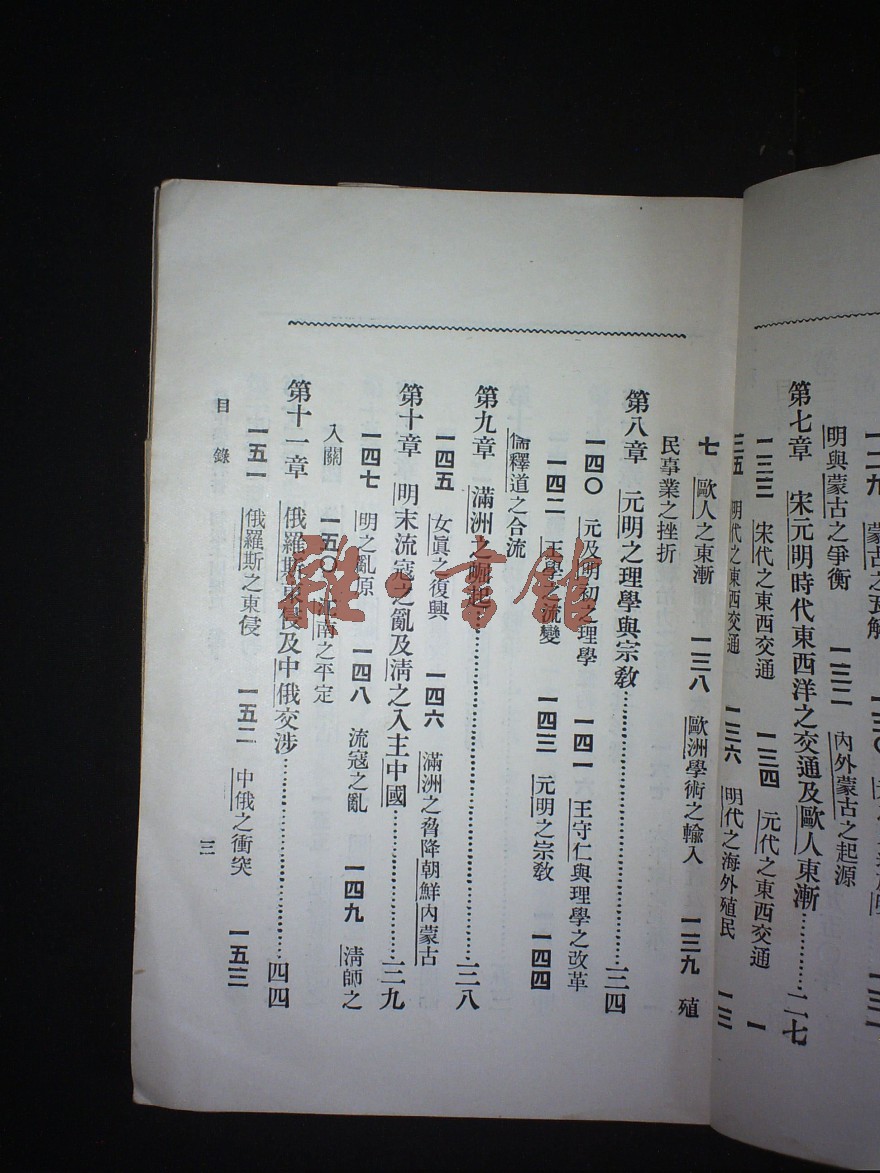 一二九 蒙古之瓦解 一三〇
明與蒙古之爭衡 一三二 內外蒙古之起源
第七章 宋元明時代東西洋之交通及歐人東漸…………二七
一三三 宋代之東西交通 一三四 元代之東西交通 一
三五 明代之東西交通 一三六 明代之海外殖民 一三
七 歐人之東漸 一三八 歐洲學術之輸入 一三九 殖
民事業之挫折
第八章 元明之理學與宗教…………三四
一四〇 元及明初之理學 一四一 王守仁與理學之改革
一四二 王學之流變 一四三 元明之宗教 一四四
儒釋道之合流
第九章 滿洲之崛起…………三八
一四五 女眞之復興 一四六 滿洲之脅降朝鮮內蒙古
第十章 明末流寇之亂及淸之入主中國…………三九
一四七 明之亂原 一四八 流寇之亂 一四九 淸師之
入關 一五〇 江南之平定
第十一章 俄羅斯東侵及中俄交涉…………四四
一五一 俄羅斯之東侵 一五二 中俄之衝突 一五三
目錄 三
雅·書館